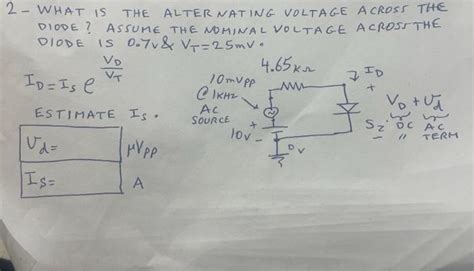 2- WHAT IS THE ALTERNATING VOLTAGE ACROSS THE
DIODE? ASSUME THE NOMINAL VOLTAGE ACROSS THE
DIODE IS 0.7V & VT=25mV.
ID=IS e^(VD/VT)
ESTIMATE IS.
Ud= μVpp
IS= A
4.65kΩ
ID
10mVpp
@1KHZ
AC
SOURCE
+
10V-
0V
+
VD + Ud
DC AC
" TERM